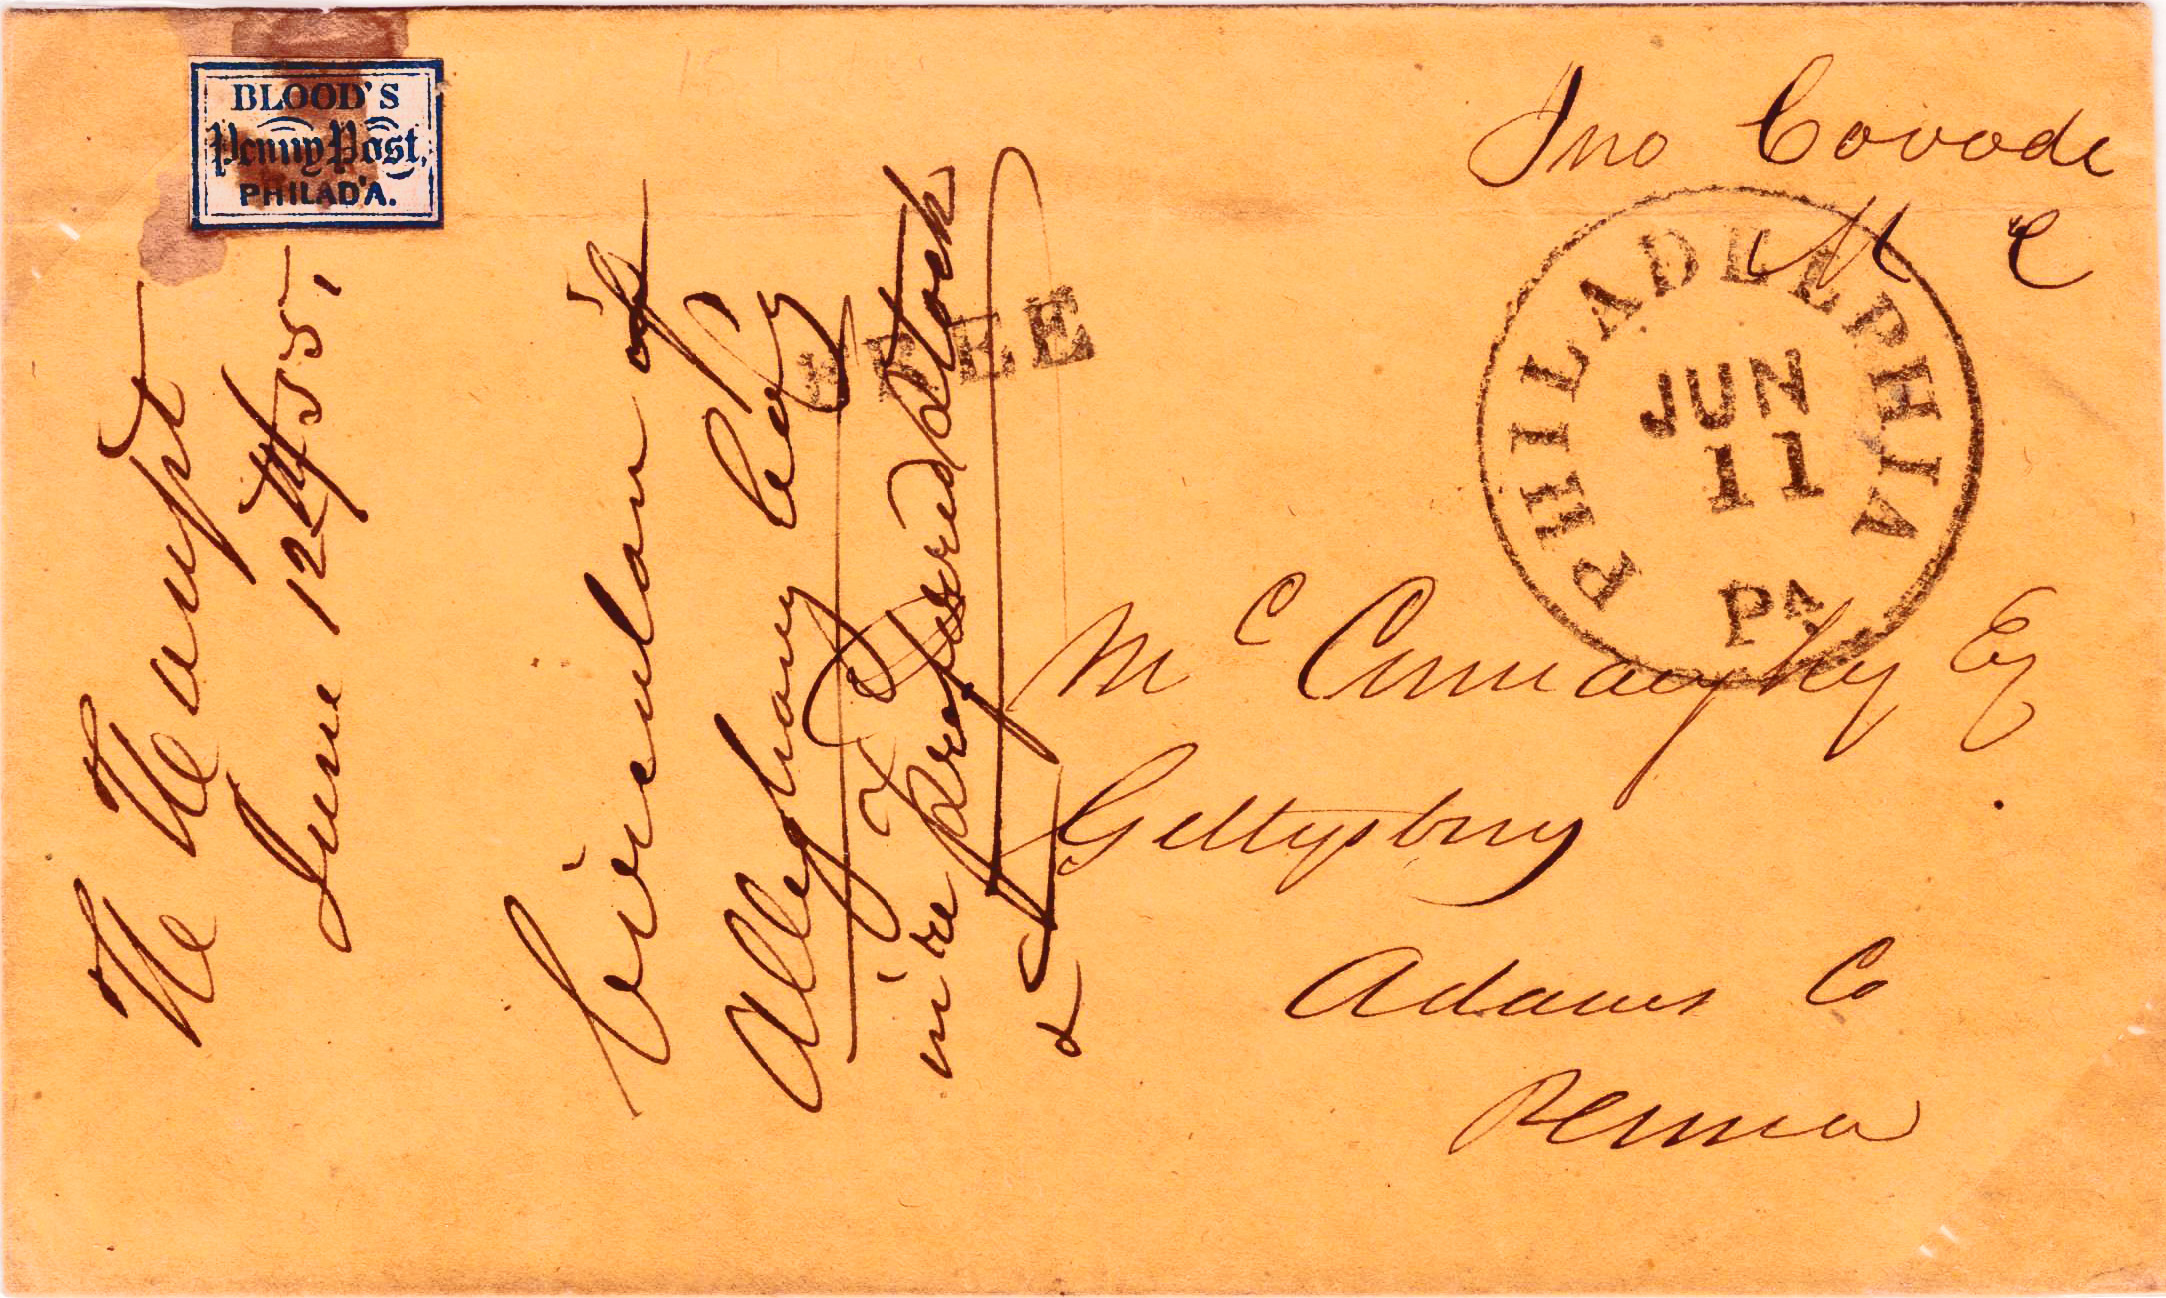 BLOOD'S
Penny Post,
PHILAD'A.
Jno Covode
M C
PHILADELPHIA
JUN
11
PA
FREE
McConaughy Eq
Gettysburg
Adams Co
Penna
H Haupt
June 12th/55,
Circular of
Alleghany City
in re Preferred Stock